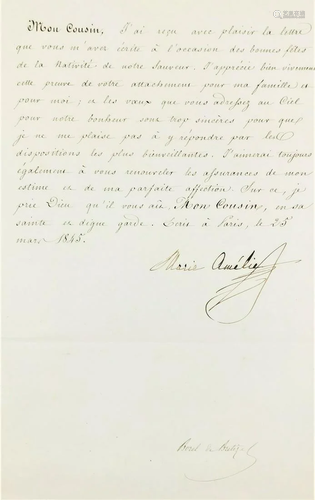 Mon Cousin, J'ai reçu avec plaisir la lettre
que vous m'avez écrite à l'occasion des bonnes fêtes
de la Nativité de notre Sauveur. J'apprécie bien vivement
cette preuve de votre attachement pour ma famille et
pour moi; et les vœux que vous adressez au Ciel
pour notre bonheur sont trop sincères pour que
je ne me plaise pas à y répondre par les
dispositions les plus bienveillantes. J'aimerai toujours
également à vous renouveler les assurances de mon
estime et de ma parfaite affection. Sur ce, je
prie Dieu qu'il vous ait, Mon Cousin, en sa
sainte et digne garde. Écrit à Paris, le 25
mars 1845.
Marie Amélie